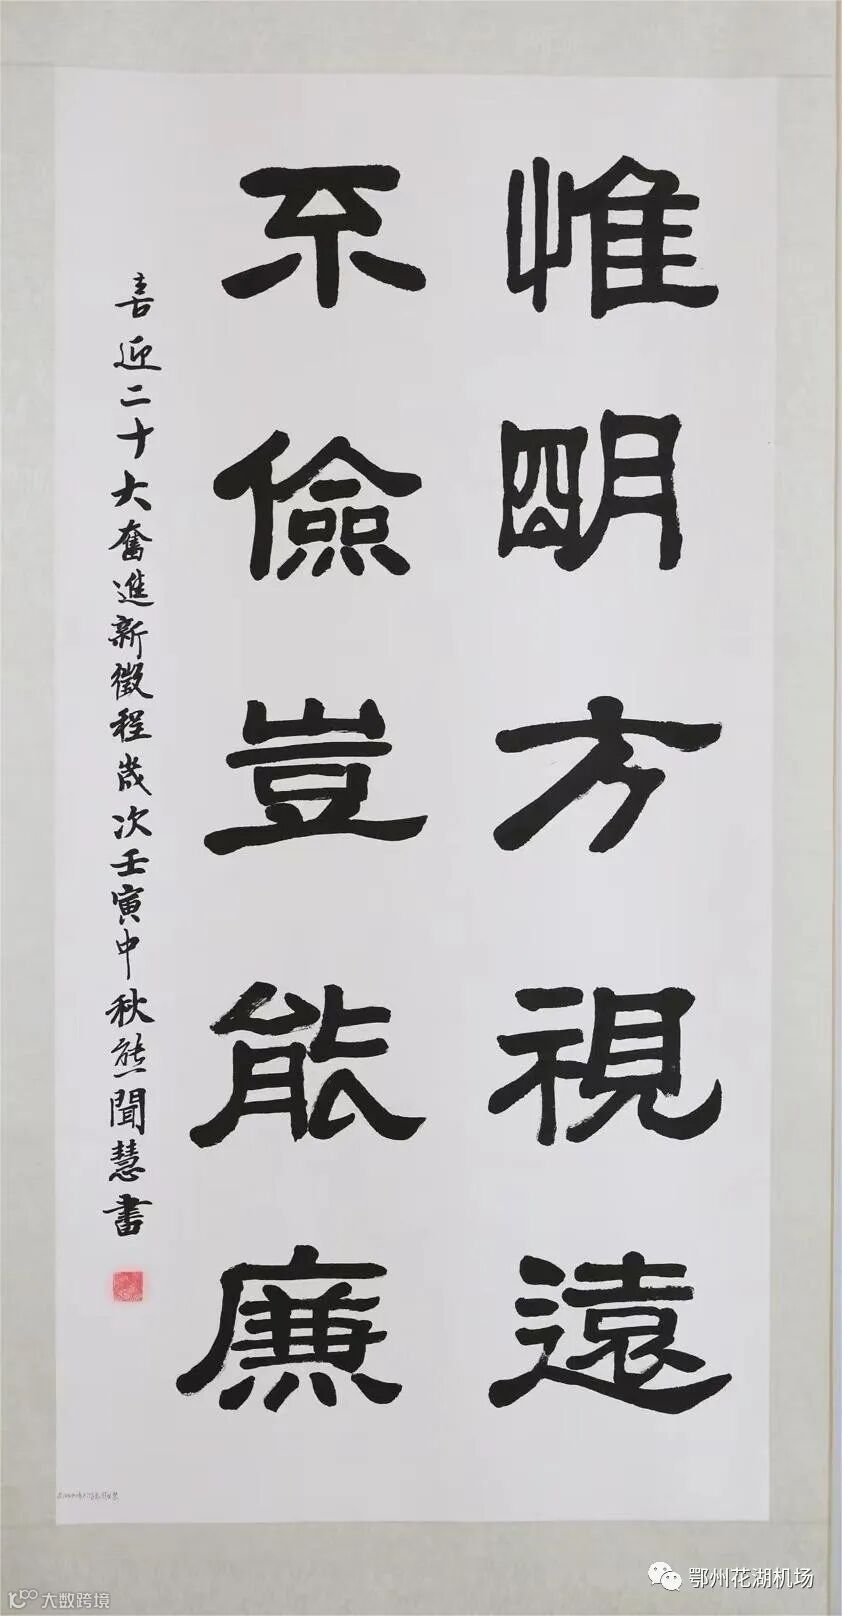 惟明方視遠
不儉豈能廉
喜迎二十大奮進新徵程歲次壬寅中秋熊聞慧書
鄂州花湖机场
大数跨境